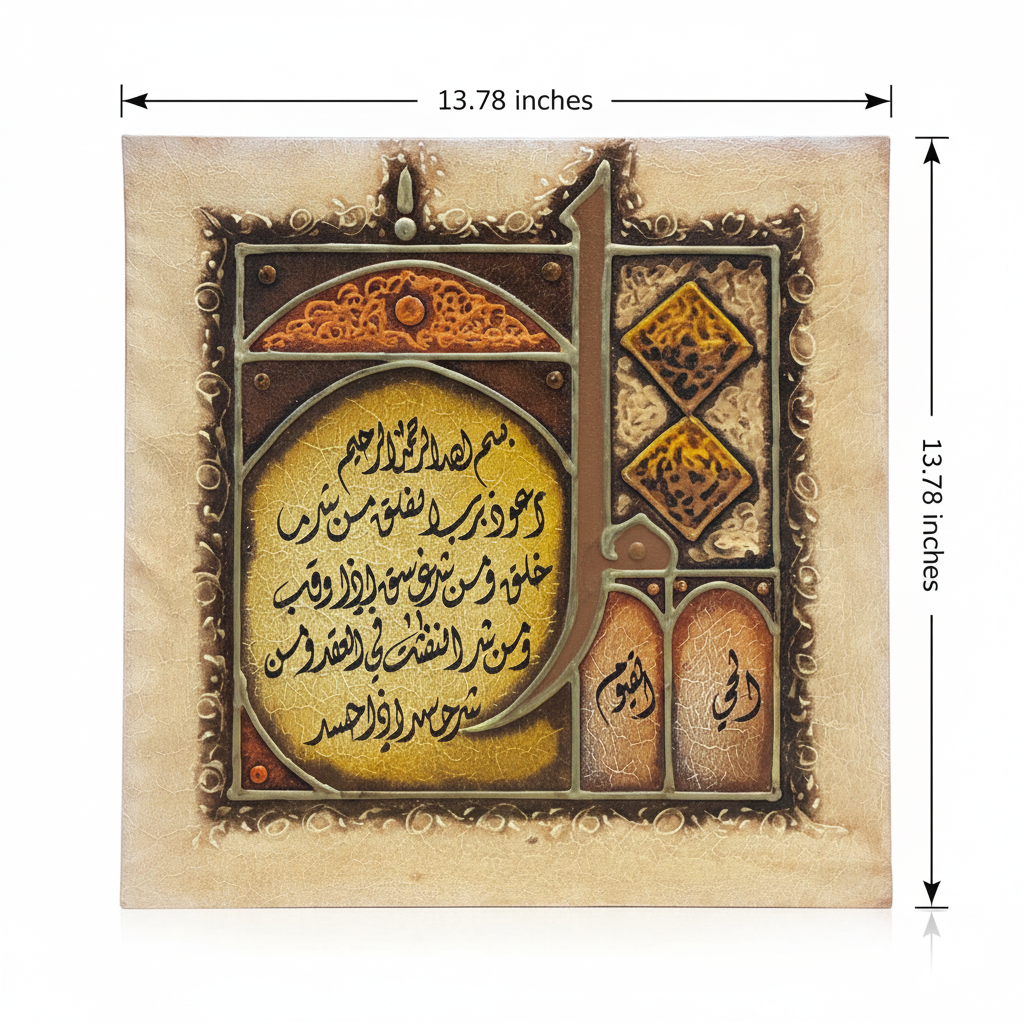 13.78 inches
بسم الله الرحمن الرحيم
أعوذ برب الفلق من شر ما
خلق ومن شر غاسق إذا وقب
ومن شر النفثت في العقد ومن
شر حاسد إذا حسد
الحي
القيوم
13.78 inches